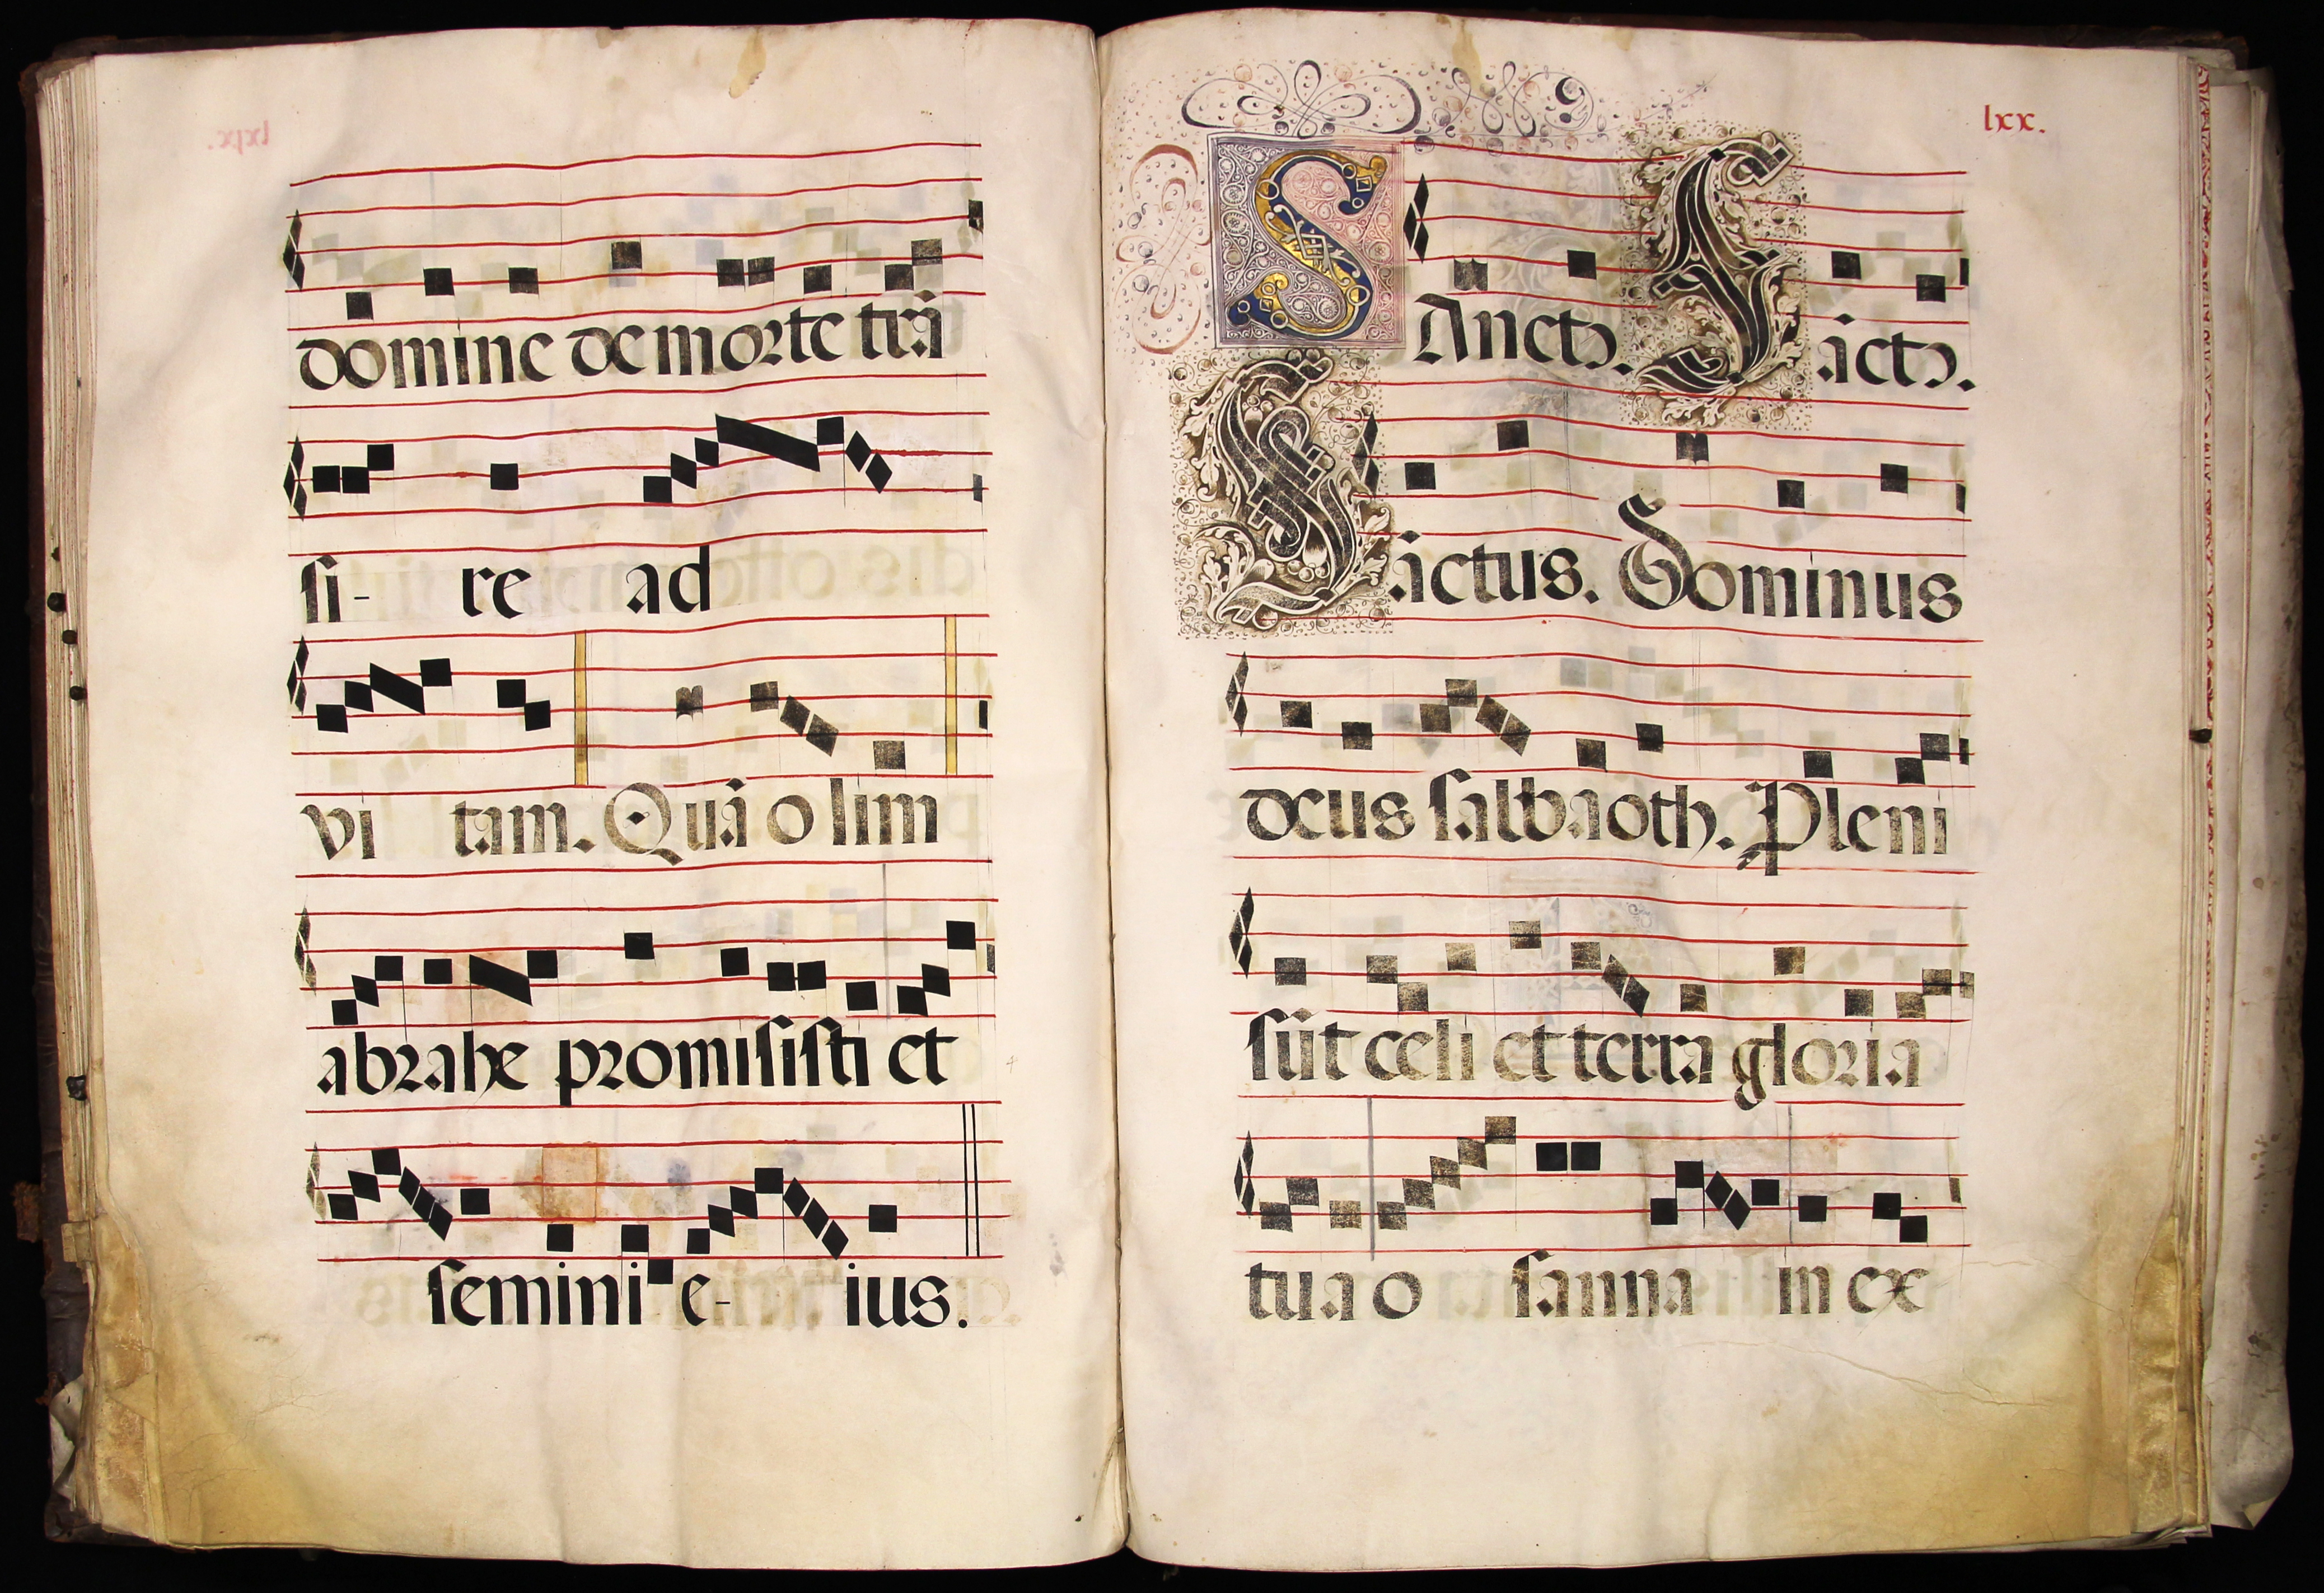 domine de morte trā
si- re ad
vi tam. Quā olim
abrahe promisisti et
semini e- ius.
lxx.
Sanctꝰ. Sāctꝰ.
Sāctus. Dominus
deus salbaoth. Pleni
sūt celi et terra gloria
tua o sanna in ex